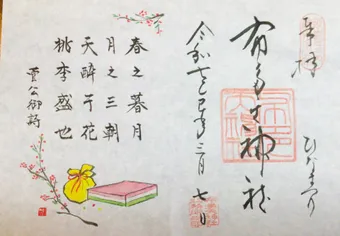 奉拝
ひなまつり
神社
令和七乙巳年三月七日
春之暮月
月之三朝
天醉于花
桃李盛也
菅公御詩